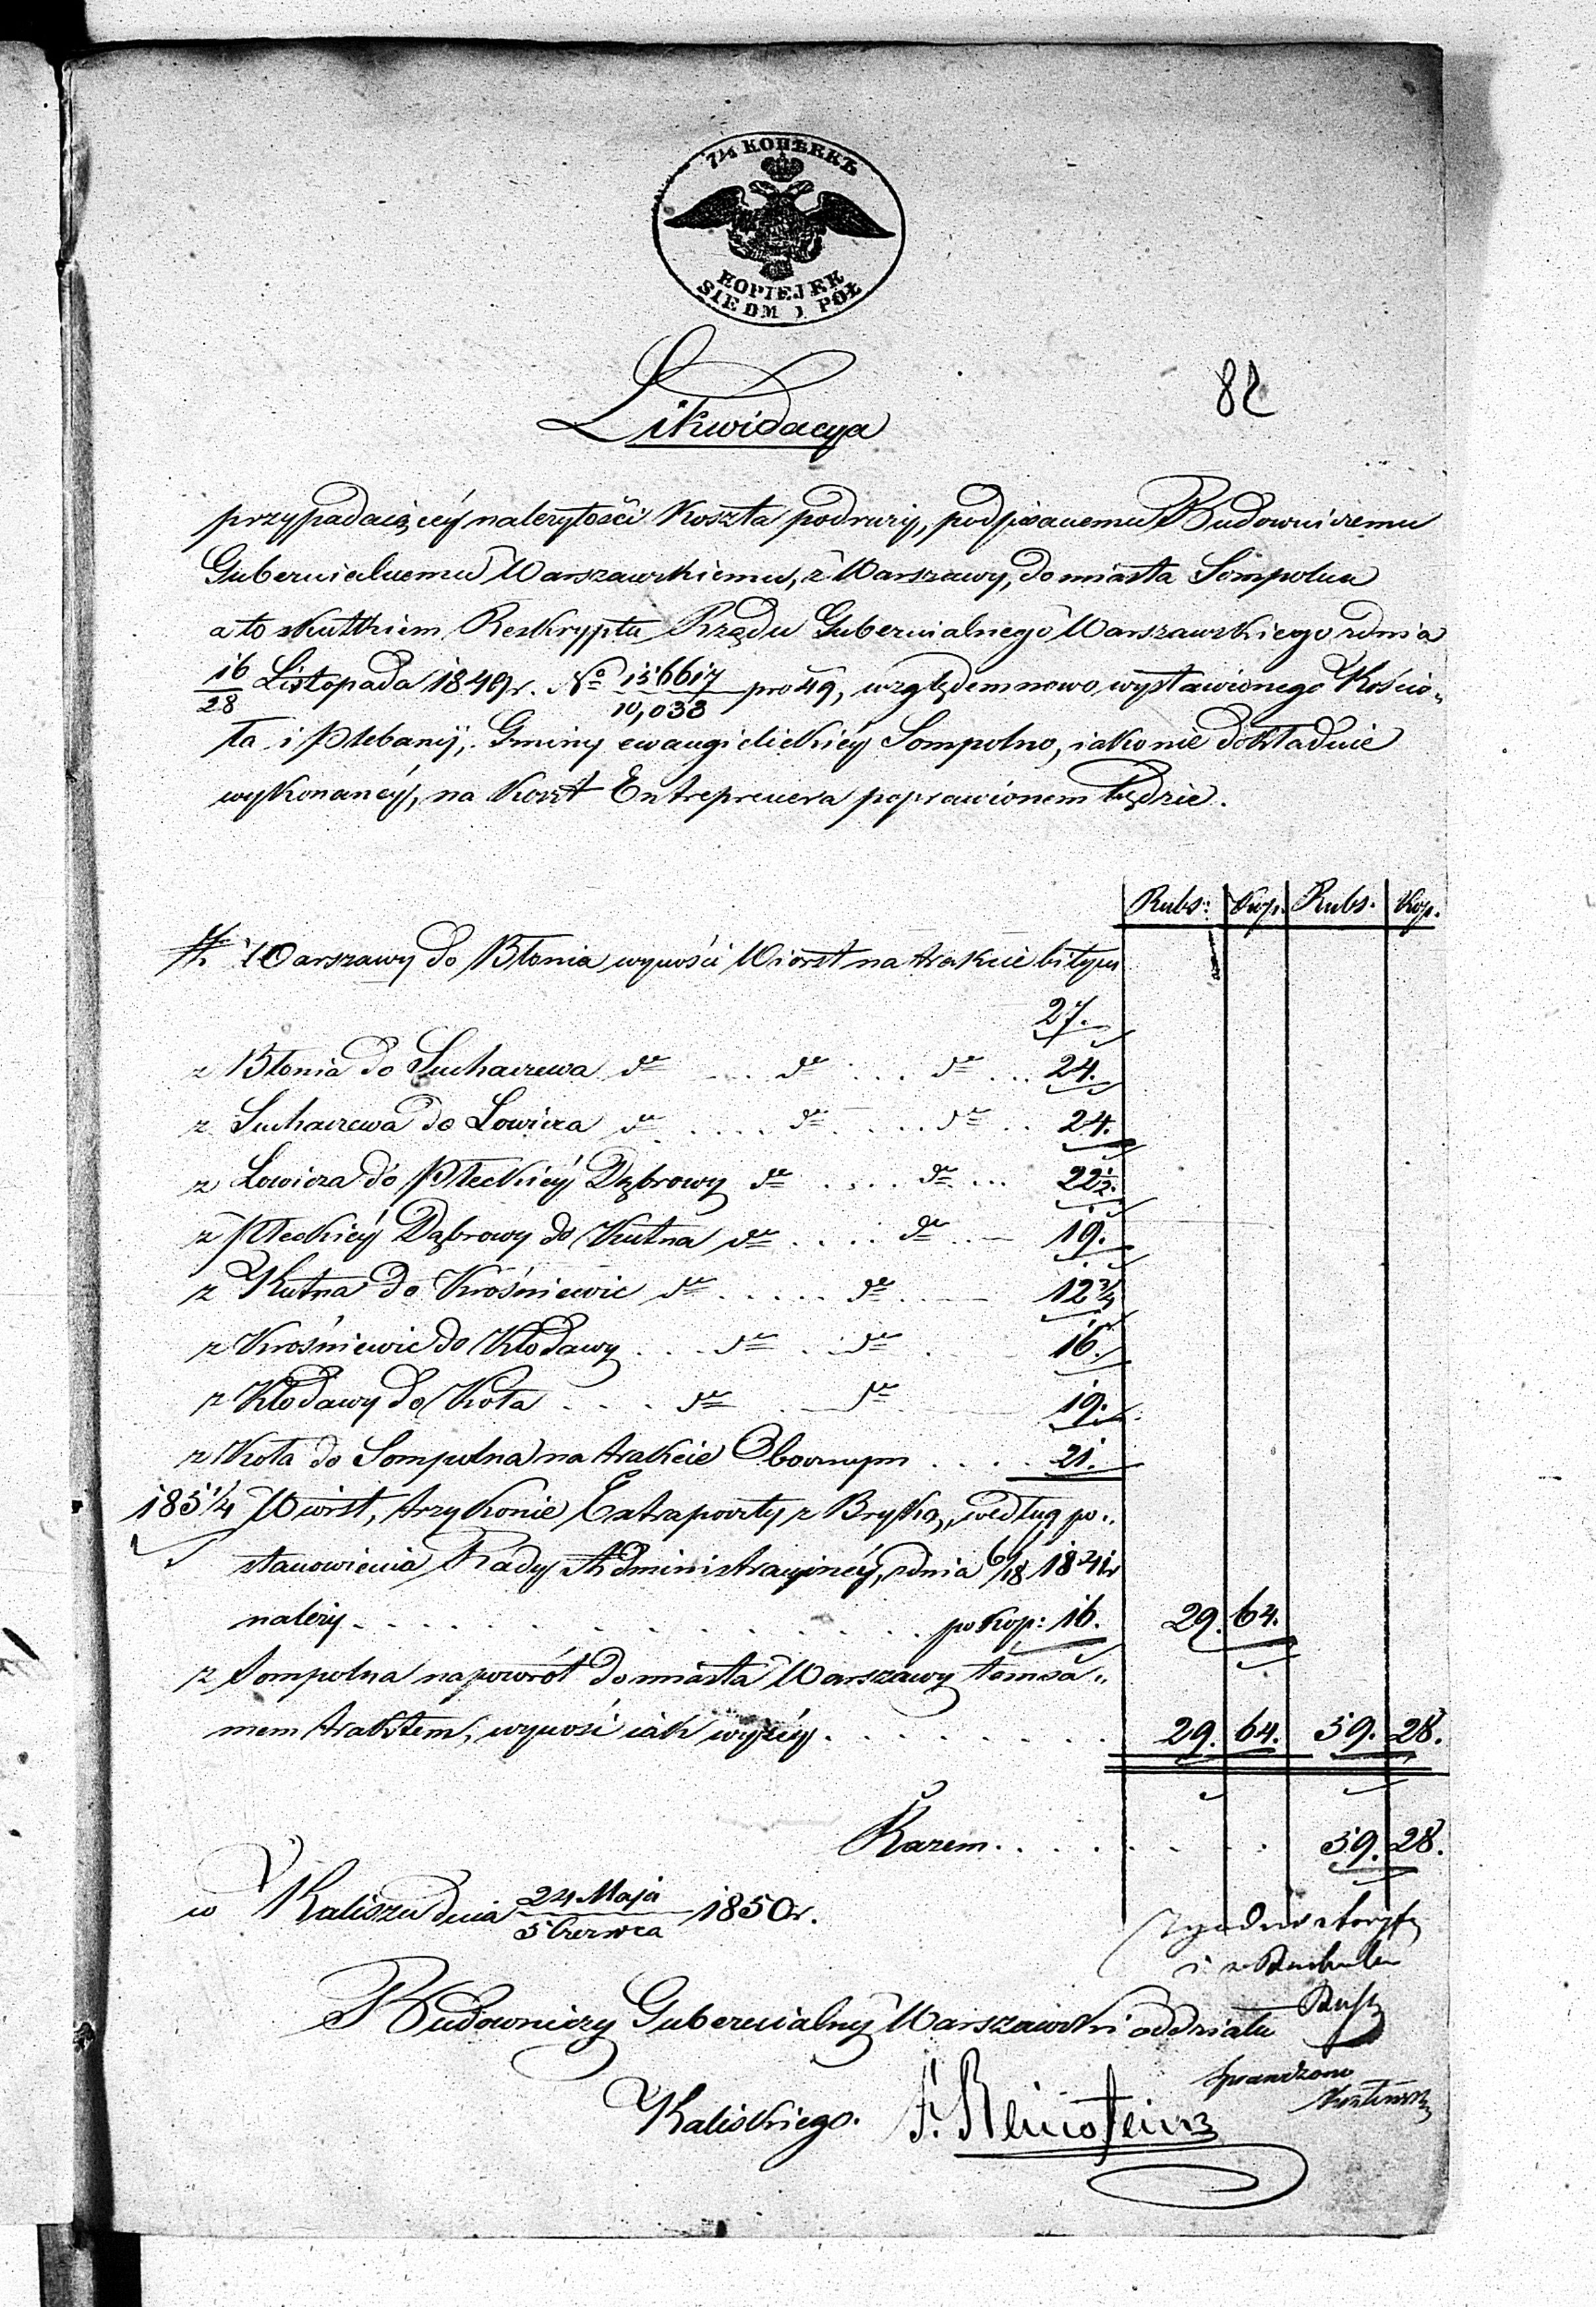 7½ КОПѢЕКЪ
KOPIEJEK
SIEDM I PÓŁ
82
Likwidacya
przypadaiącéy należytości Koszta podruży, podpisanemu Budowniczemu
Gubernialnemu Warszawskiemu, z Warszawy, do miasta Sompolna
a to skutkiem Reskryptu Rządu Gubernialnego Warszawskiego z dnia
16/28 Listopada 1849 r. No 156617/10,033 pro 49, względem nowo wystawionego Kościo„
ła i Plebanij, Gminy ewangielickiéy Sompolno, iako nie dokładnie
wykonanéy, na koszt Entreprenera poprawionem będzie.
Rubs: Kop. Rubs. Kop.
Z Warszawy do Błonia wynosi Wiorst na trakcie bitym
27.
z Błonia do Suchaczewa do ... do ... do ... 24.
z Suchaczewa do Łowicza do .... do .... do .. 24.
z Łowicza do Płeckiéy Dąbrowy do .... do ... 22½.
z Płeckiéy Dąbrowy do Kutna do .... do ... 19.
z Kutna do Krośniewic do ..... do .... 12¾
z Krośniewic do Kłodawy ... do .. do . 16.
z Kłodawy do Koła .... do . do 19.
z Koła do Sompolna na trakcie Bocznym .... 21.
185¼ Wiorst, trzy konie Extrapoczty z Bryką, według po„
stanowienia Rady Administracyinéy, z dnia 6/18 1841 r
należy . . . . . . . . . . . . po kop: 16. 29. 64.
z Sompolna napowrót do miasta Warszawy témsa„
mem traktem, wynosi iak wyżéy . . . . . . . . 29. 64. 59. 28.
Razem . . . . . . . 59. 28.
w Kaliszu dnia 24 Maja/5 Czerwca 1850 r.
Zgodno z taryfą
i z Rachunku
Budowniczy Gubernialny Warszawski oddziału
Kaliskiego. F. Reinstein
Sprawdzono